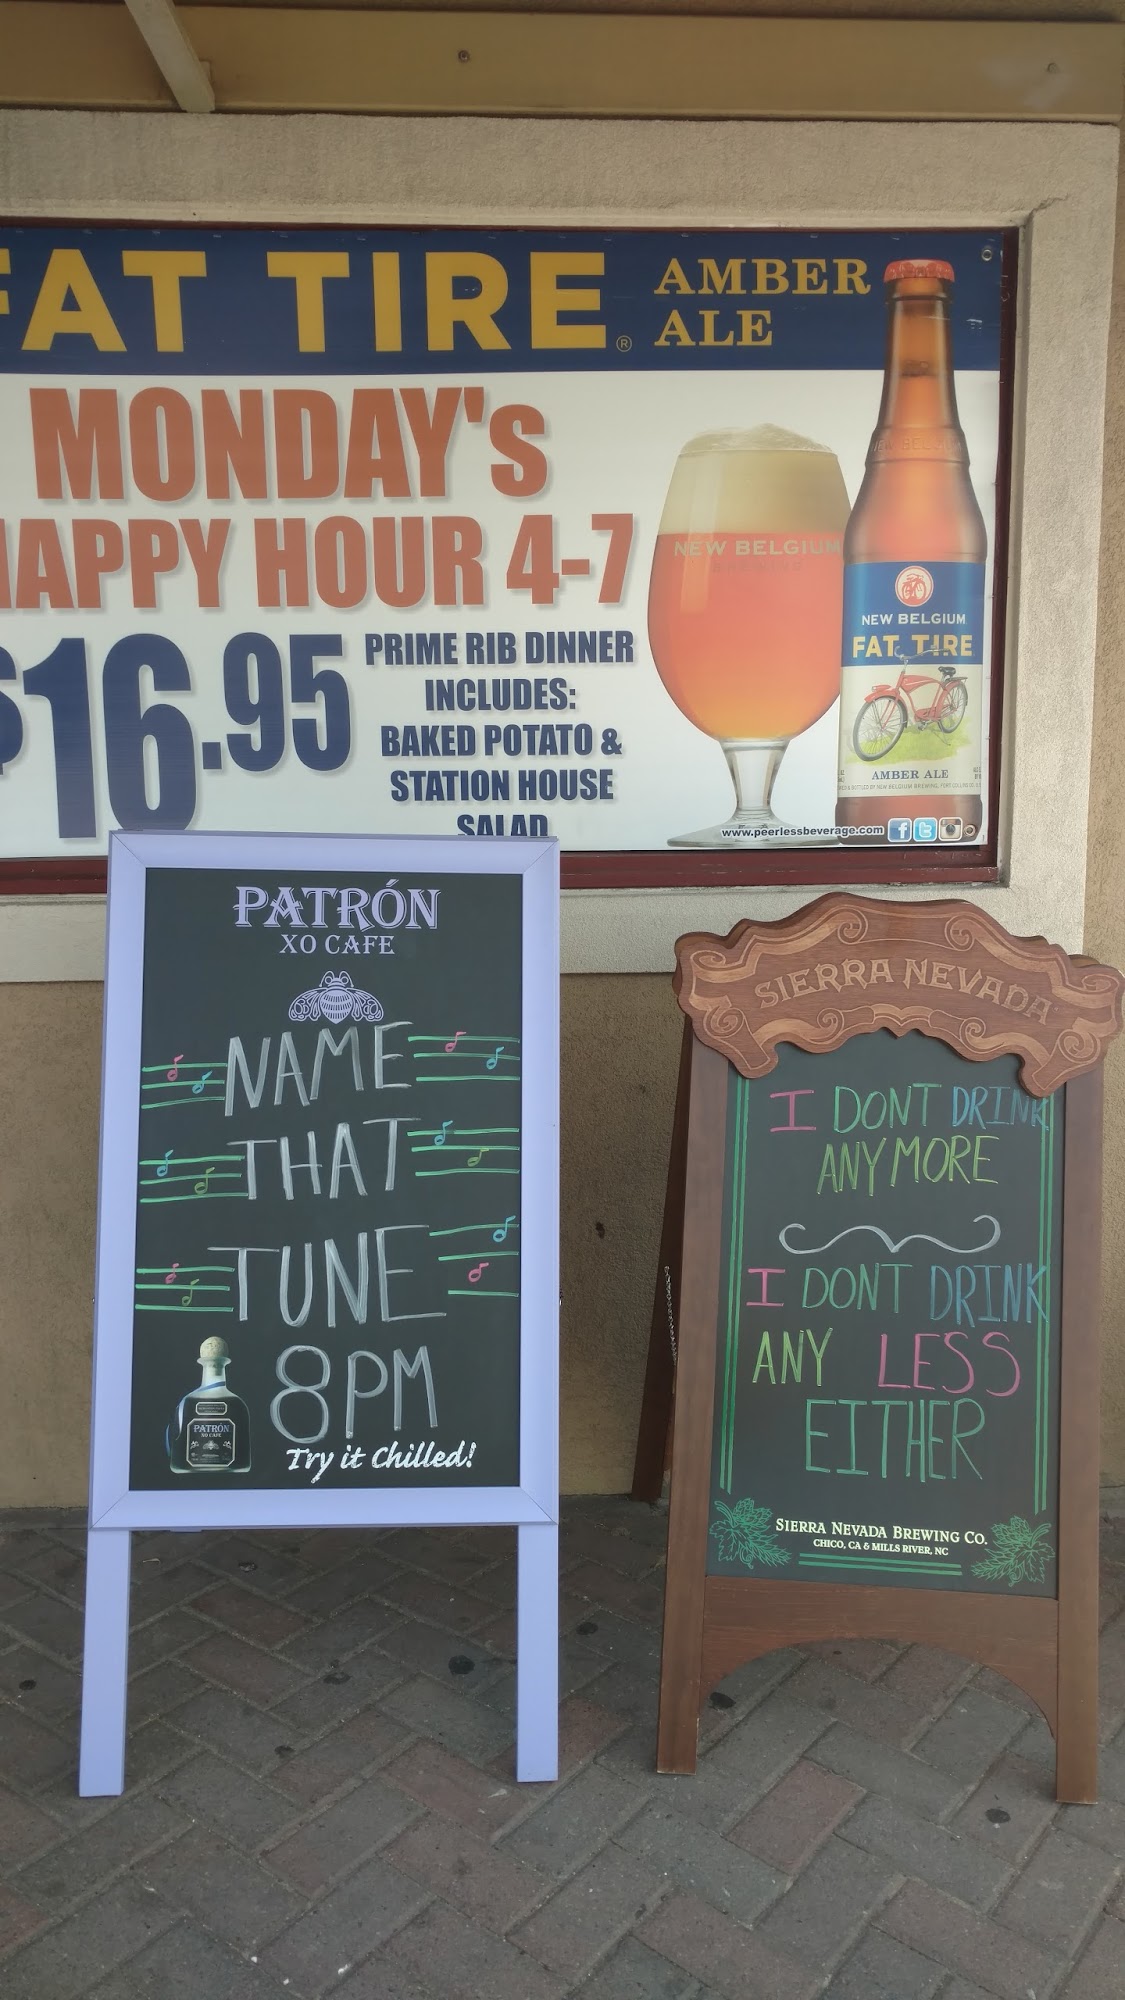 FAT TIRE® AMBER
ALE
MONDAY's
HAPPY HOUR 4-7
$16.95
PRIME RIB DINNER
INCLUDES:
BAKED POTATO &
STATION HOUSE
SALAD
NEW BELGIUM
BREWING
NEW BELGIUM
NEW BELGIUM
FAT TIRE
AMBER ALE
www.peerlessbeverage.com
PATRÓN
XO CAFE
NAME
THAT
TUNE
8PM
PATRÓN
XO CAFE
Try it Chilled!
SIERRA NEVADA
I DONT DRINK
ANYMORE
I DONT DRINK
ANY LESS
EITHER
SIERRA NEVADA BREWING CO.
CHICO, CA & MILLS RIVER, NC